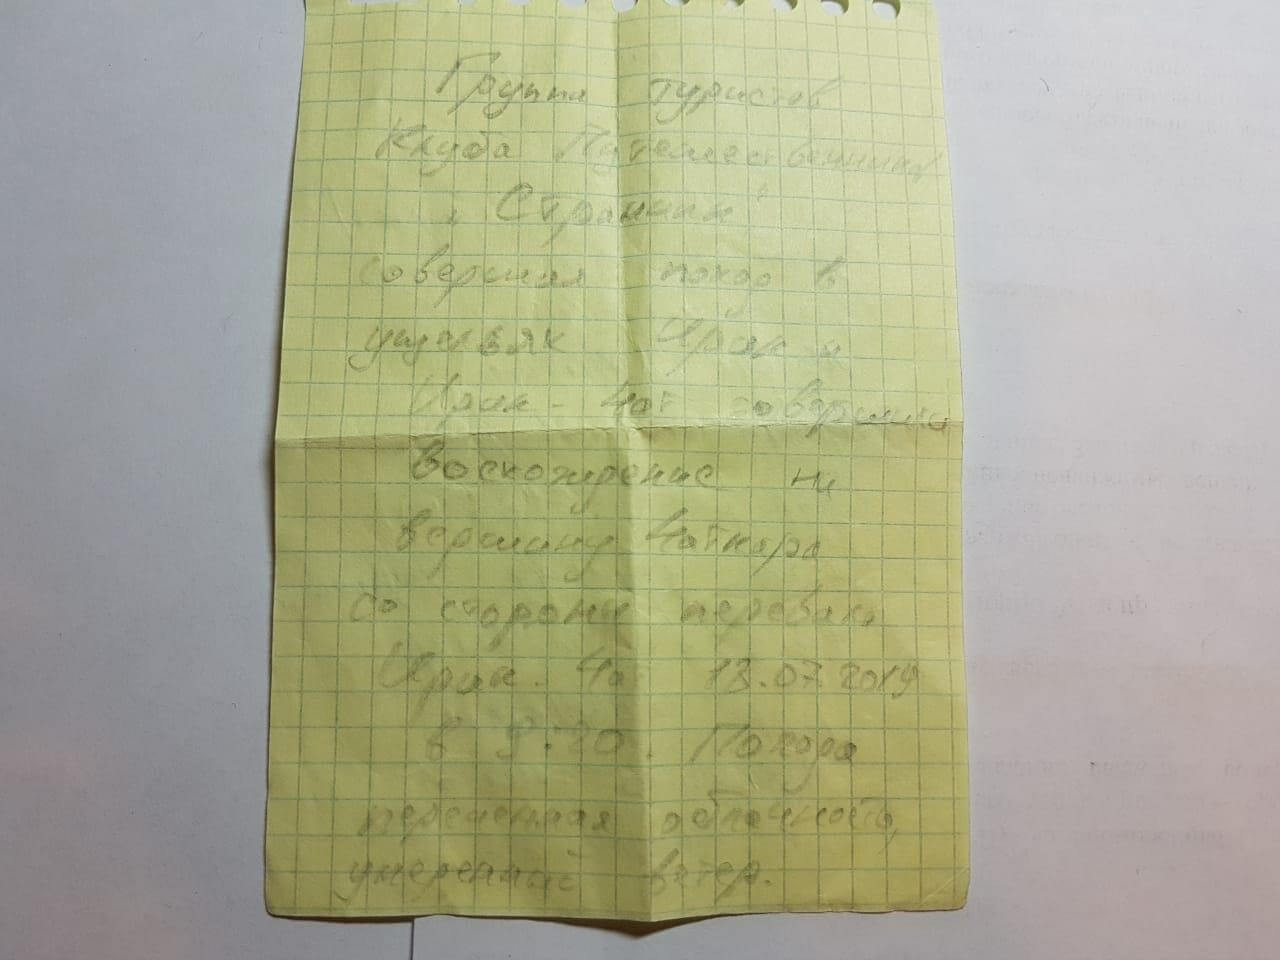 Группа туристов
Клуба Путешественников
"Странник"
совершая поход в
ущельях Ирик и
Ирик-Чат совершила
Восхождение на
вершину Чаткара
со стороны перевала
Ирик-Чат 13.07.2019
в 9:20. Погода
переменная облачность,
умеренный ветер.